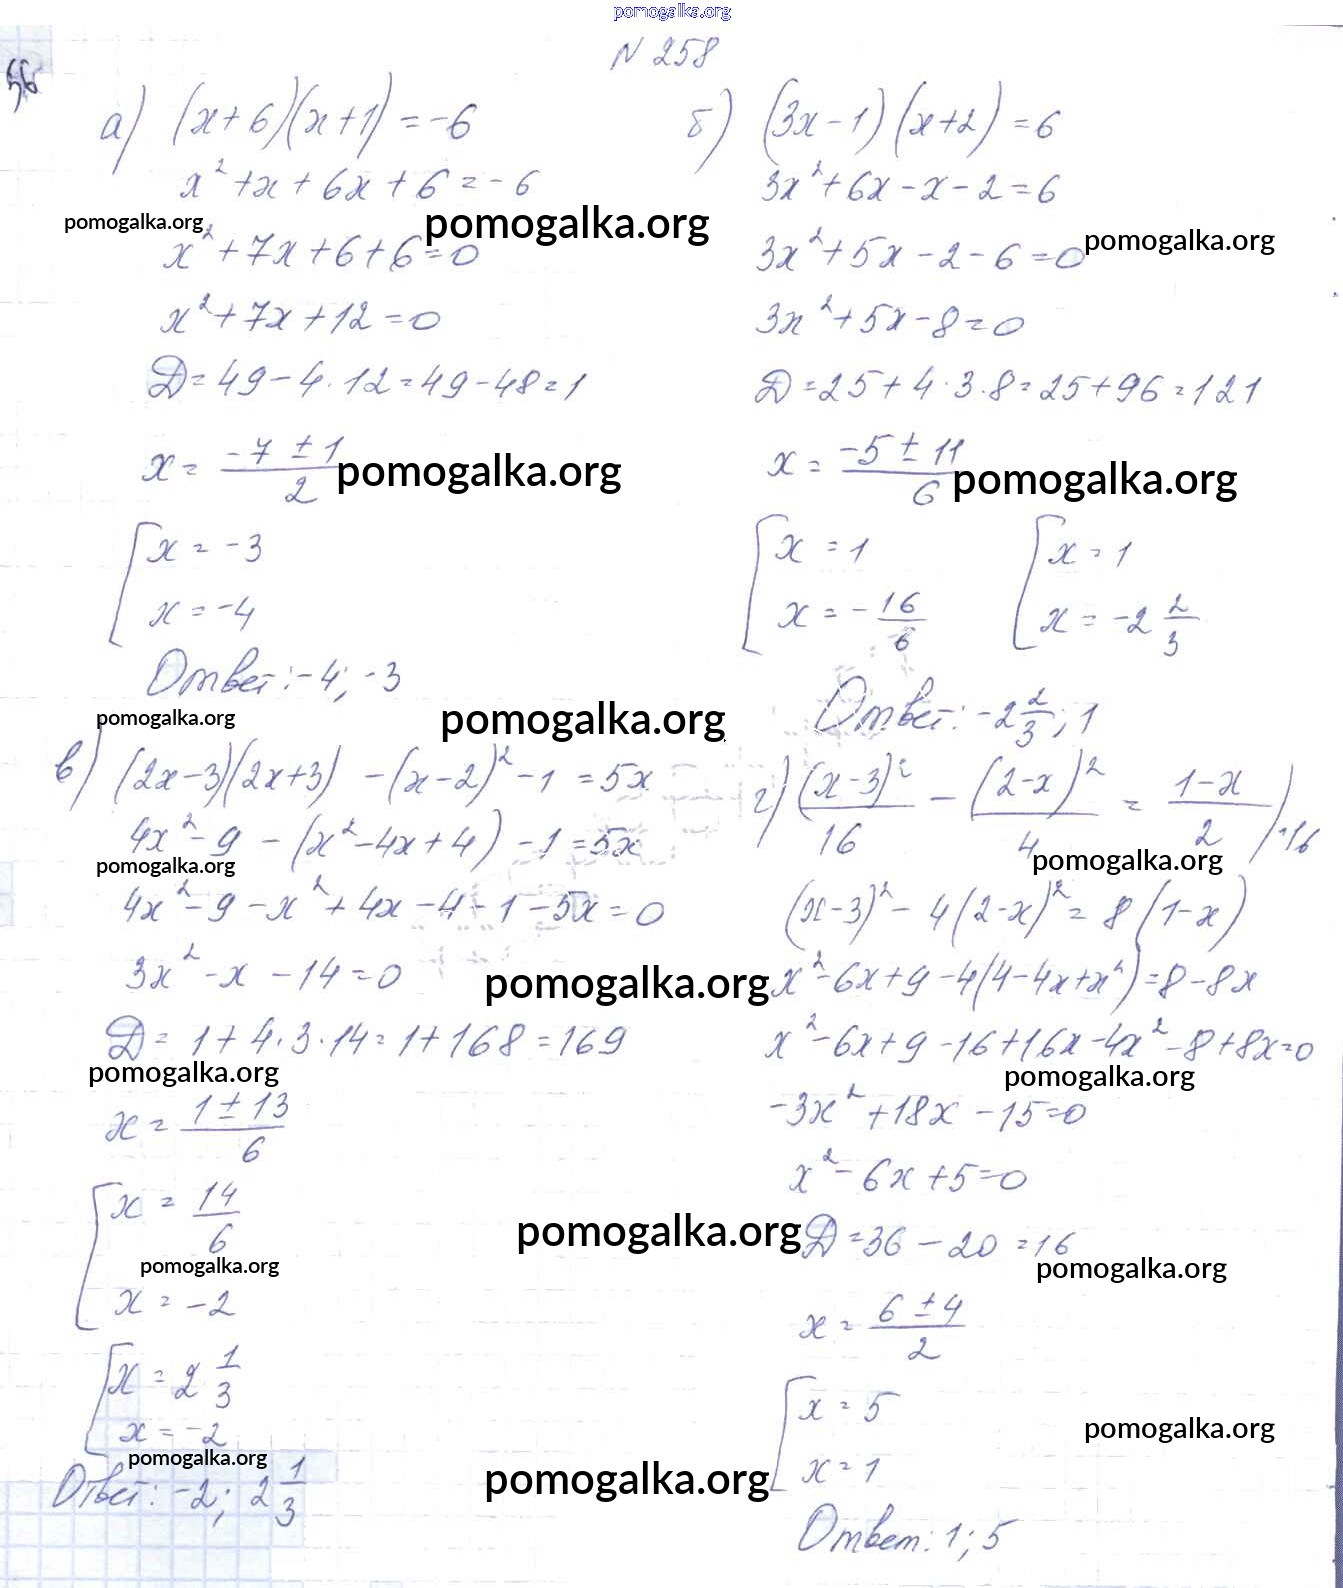 pomogalka.org
N 258
56
а) (x+6)(x+1) = -6
x² + x + 6x + 6 = -6
pomogalka.org pomogalka.org
x² + 7x + 6 + 6 = 0
x² + 7x + 12 = 0
D = 49 - 4·12 = 49 - 48 = 1
x = (-7 ± 1)/2 pomogalka.org
[ x = -3
x = -4
Ответ: -4; -3
б) (3x-1)(x+2) = 6
3x² + 6x - x - 2 = 6
3x² + 5x - 2 - 6 = 0 pomogalka.org
3x² + 5x - 8 = 0
D = 25 + 4·3·8 = 25 + 96 = 121
x = (-5 ± 11)/6 pomogalka.org
[ x = 1 [ x = 1
x = -16/6 x = -2 2/3
Ответ: -2 2/3; 1
pomogalka.org pomogalka.org
в) (2x-3)(2x+3) - (x-2)² - 1 = 5x
4x² - 9 - (x² - 4x + 4) - 1 = 5x
pomogalka.org
4x² - 9 - x² + 4x - 4 - 1 - 5x = 0
3x² - x - 14 = 0
pomogalka.org
D = 1 + 4·3·14 = 1 + 168 = 169
pomogalka.org
x = (1 ± 13)/6
[ x = 14/6
pomogalka.org
x = -2
[ x = 2 1/3
x = -2
pomogalka.org
Ответ: -2; 2 1/3
г) (x-3)²/16 - (2-x)²/4 = (1-x)/2 |·16
pomogalka.org
(x-3)² - 4(2-x)² = 8(1-x)
x² - 6x + 9 - 4(4 - 4x + x²) = 8 - 8x
x² - 6x + 9 - 16 + 16x - 4x² - 8 + 8x = 0
pomogalka.org
-3x² + 18x - 15 = 0
x² - 6x + 5 = 0
pomogalka.org D = 36 - 20 = 16
pomogalka.org
x = (6 ± 4)/2
[ x = 5
pomogalka.org
x = 1
pomogalka.org
Ответ: 1; 5